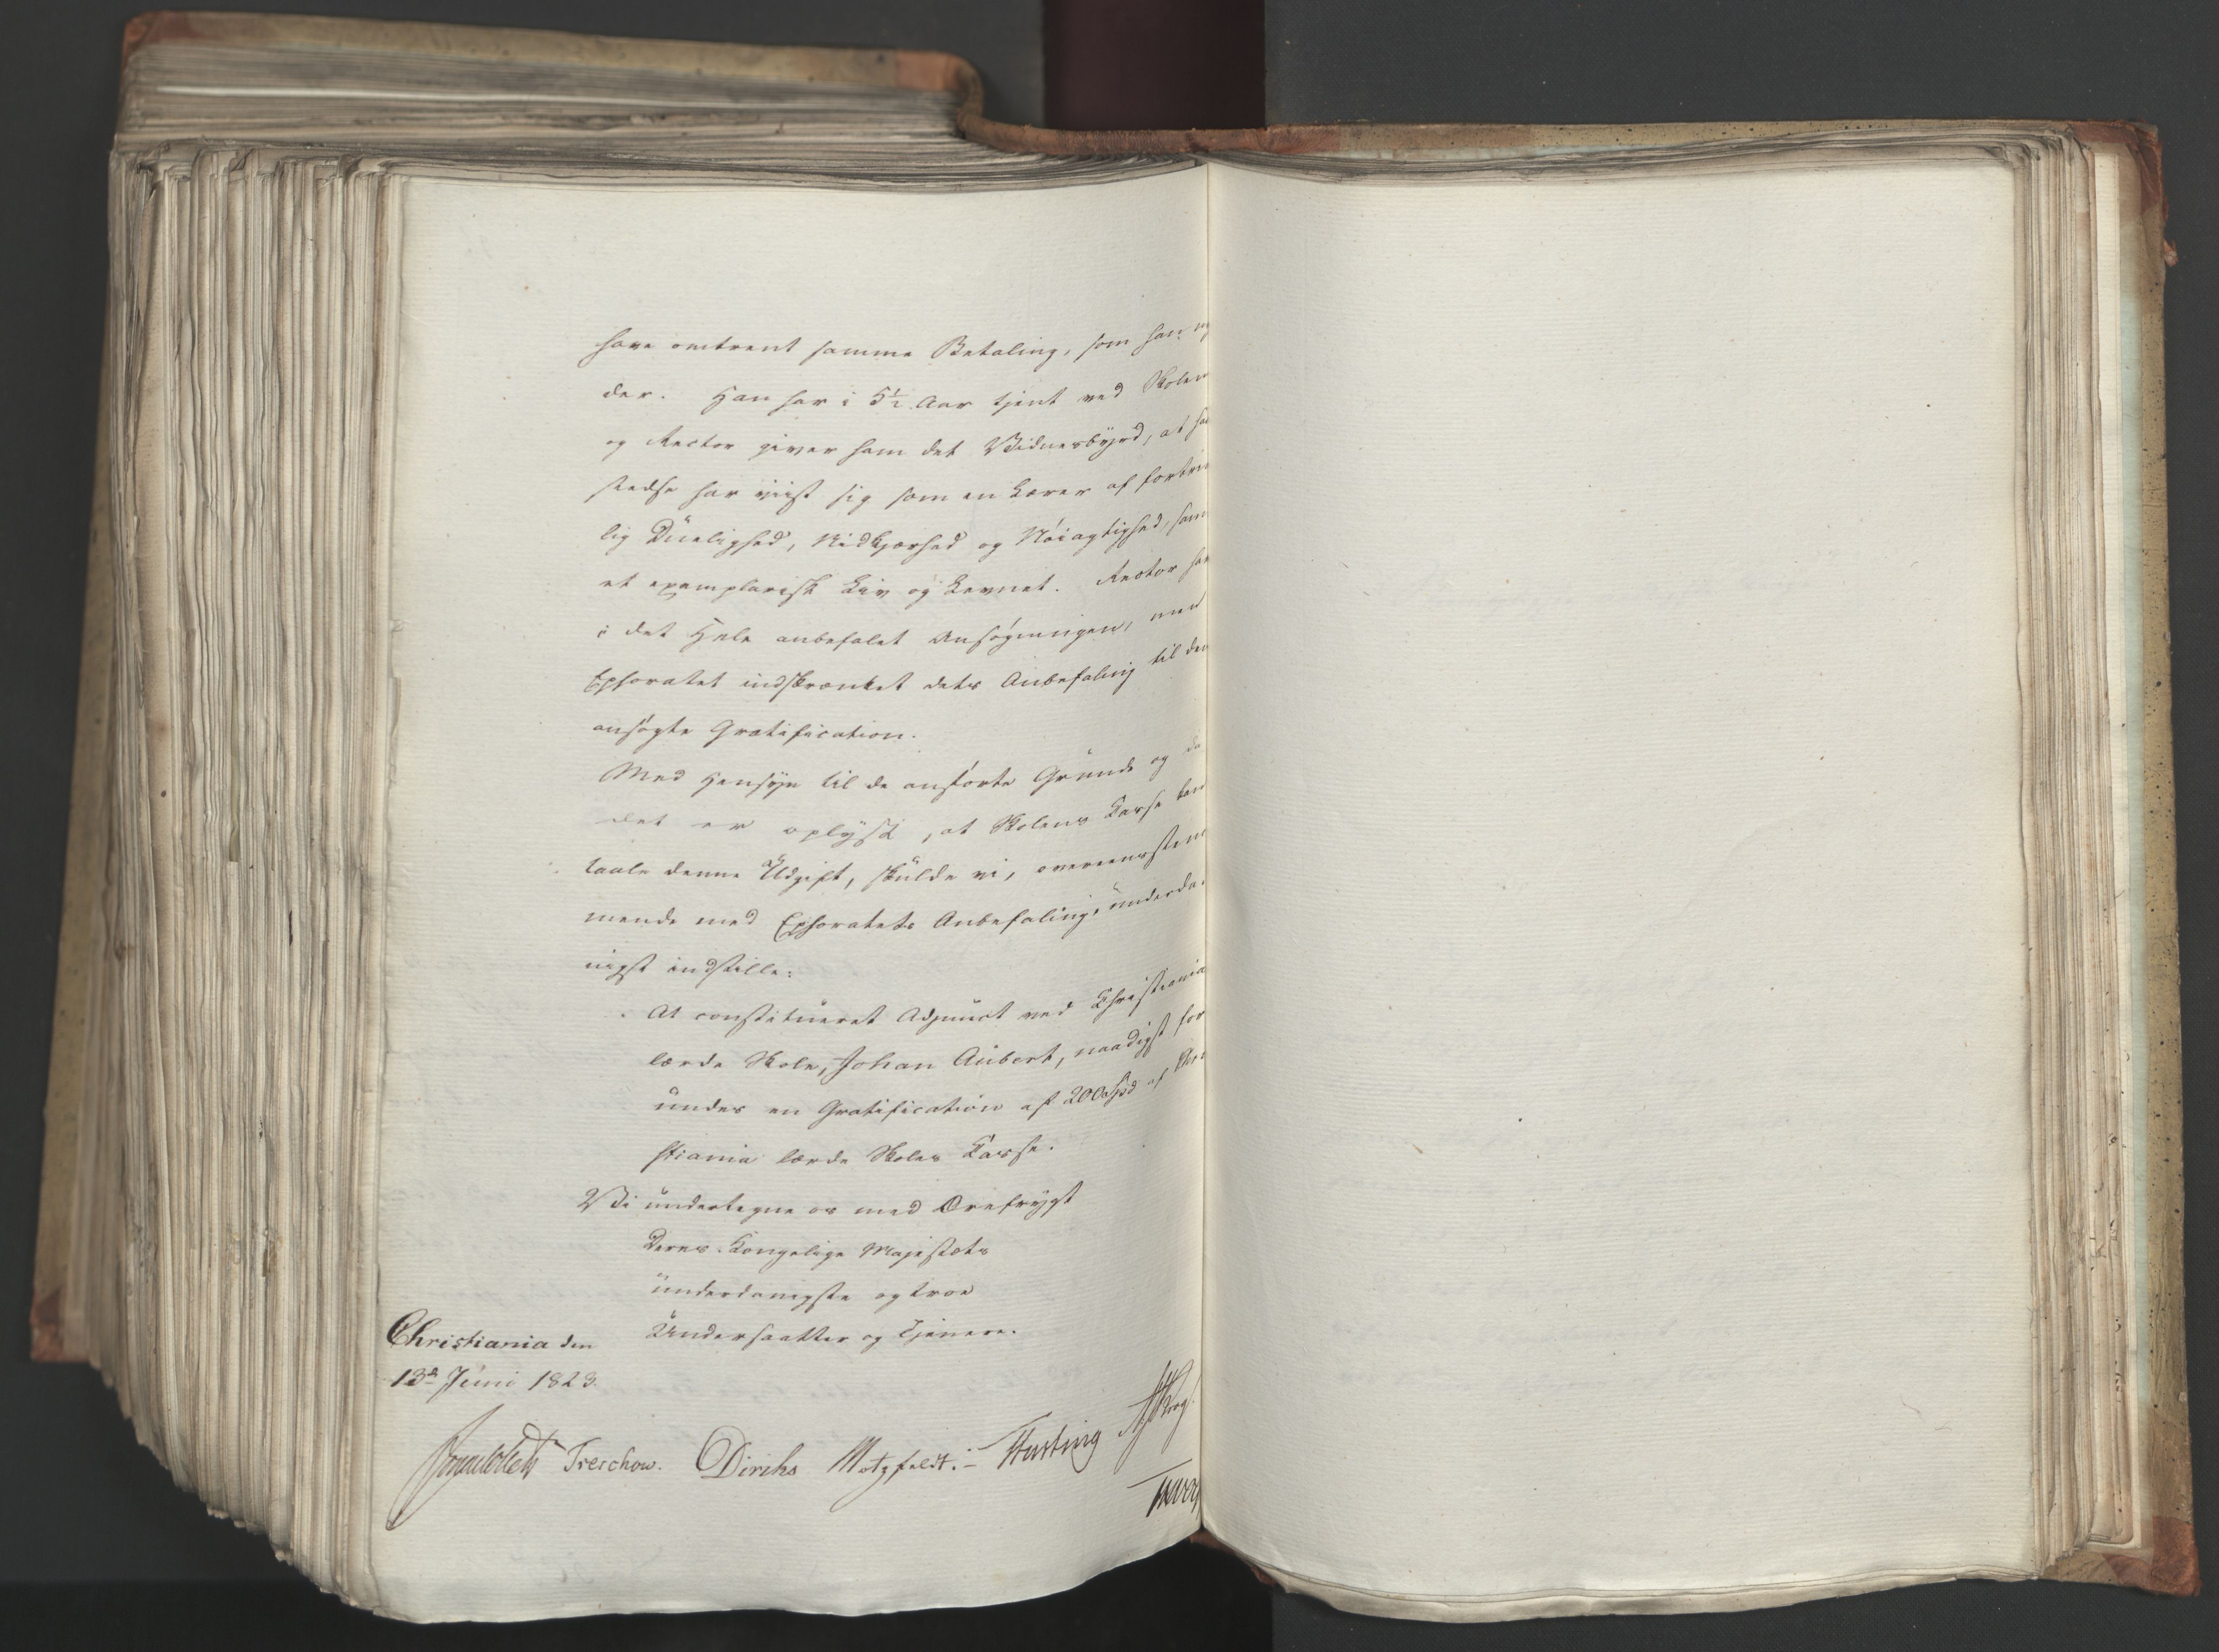 have omtrent samme Betaling, som han ny
der. Han har i 5½ Aar tjent ved Skolen
og Rector giver ham det Vidnesbyrd, at han
stedse har viist sig som en Lærer af fortrin
lig Duelighed, Nidkjærhed og Nöiagtighed, samt
et exemplarisk Liv og Levnet. Rector har
i det Hele anbefalet Ansøgningen, men
Ephoratet indskrænket dets Anbefaling til den
ansøgte Gratification.
Med Hensyn til de anførte Grunde og da
det er oplyst, at Skolens Casse kan
taale denne Udgift, skulde vi, overeensstem
mende med Ephoratets Anbefaling, underda-
nigst indstille:
At constitueret Adjunct ved Christiania
lærde Skole, Johan Aubert, naadigst for
undes en Gratification af 200 Spd af Chri
stiania lærde Skoles Casse.
Vi undertegne os med Ærefrygt
Deres Kongelige Majestæts
underdanigste og troe
Undersaatter og Tjenere.
Christiania den
13de Juni 1823.
Treschow. Diriks Motzfeldt. Fasting Krog